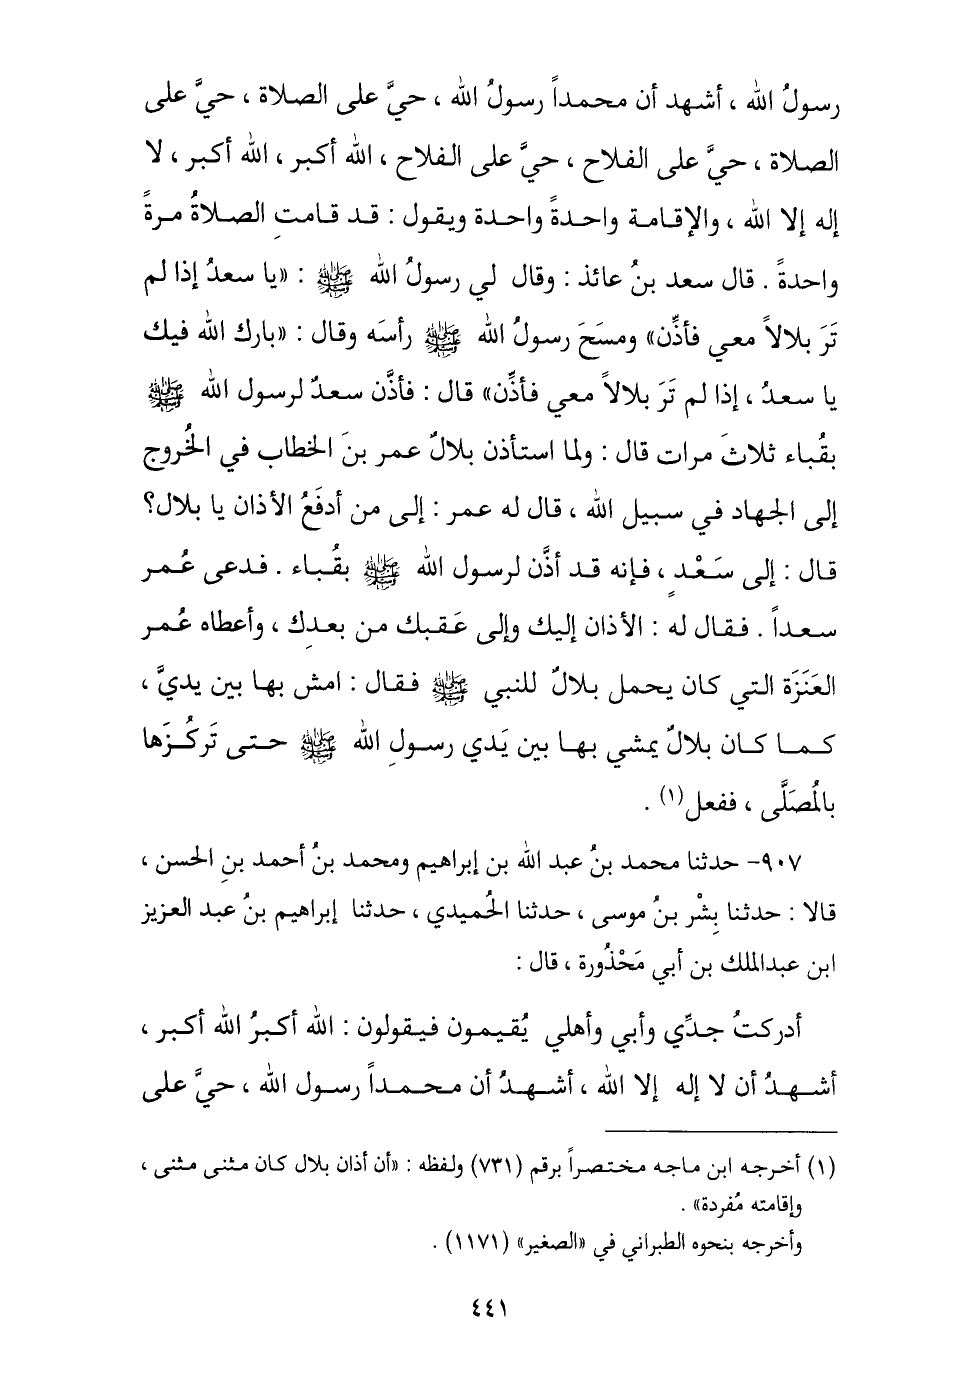 رسولُ الله ، أشهد أن محمداً رسولُ الله ، حيَّ على الصلاة ، حيَّ على
الصلاة ، حيَّ على الفلاح ، حيَّ على الفلاح ، الله أكبر ، الله أكبر ، لا
إله إلا الله ، والإقامة واحدةً واحدة ويقول : قد قامتِ الصلاةُ مرةً
واحدةً . قال سعد بنُ عائذ : وقال لي رسولُ الله ﷺ : «يا سعدُ إذا لم
تَرَ بلالاً معي فأذِّن» ومسَحَ رسولُ الله ﷺ رأسَه وقال : «بارك الله فيك
يا سعدُ ، إذا لم تَرَ بلالاً معي فأذِّن» قال : فأذَّن سعدٌ لرسول الله ﷺ
بقُباء ثلاثَ مرات قال : ولما استأذن بلالٌ عمر بنَ الخطاب في الخُروج
إلى الجهاد في سبيل الله ، قال له عمر : إلى من أدفَعُ الأذان يا بلال؟
قال : إلى سَعْدٍ ، فإنه قد أذَّن لرسول الله ﷺ بقُباء . فدعى عُمر
سعداً . فقال له : الأذان إليك وإلى عَقبك من بعدِك ، وأعطاه عُمر
العَنَزَة التي كان يحمل بلالٌ للنبي ﷺ فقال : امش بها بين يديَّ ،
كما كان بلالٌ يمشي بها بين يَدي رسولِ الله ﷺ حتى تَركُزَها
بالمُصَلَّى ، ففعل(١) .
٩٠٧- حدثنا محمد بنُ عبد الله بن إبراهيم ومحمد بنُ أحمد بنِ الحسن ،
قالا : حدثنا بِشْر بنُ موسى ، حدثنا الحُميدي ، حدثنا إبراهيم بنُ عبد العزيز
ابن عبدالملك بن أبي مَحْذُورة ، قال :
أدركتُ جدِّي وأبي وأهلي يُقيمون فيقولون : الله أكبرُ الله أكبر ،
أشهدُ أن لا إله إلا الله ، أشهدُ أن محمداً رسول الله ، حيَّ على
(١) أخرجه ابن ماجه مختصراً برقم (٧٣١) ولفظه : «أن أذان بلال كان مثنى مثنى ،
وإقامته مُفردة» .
وأخرجه بنحوه الطبراني في «الصغير» (١١٧١) .
٤٤١